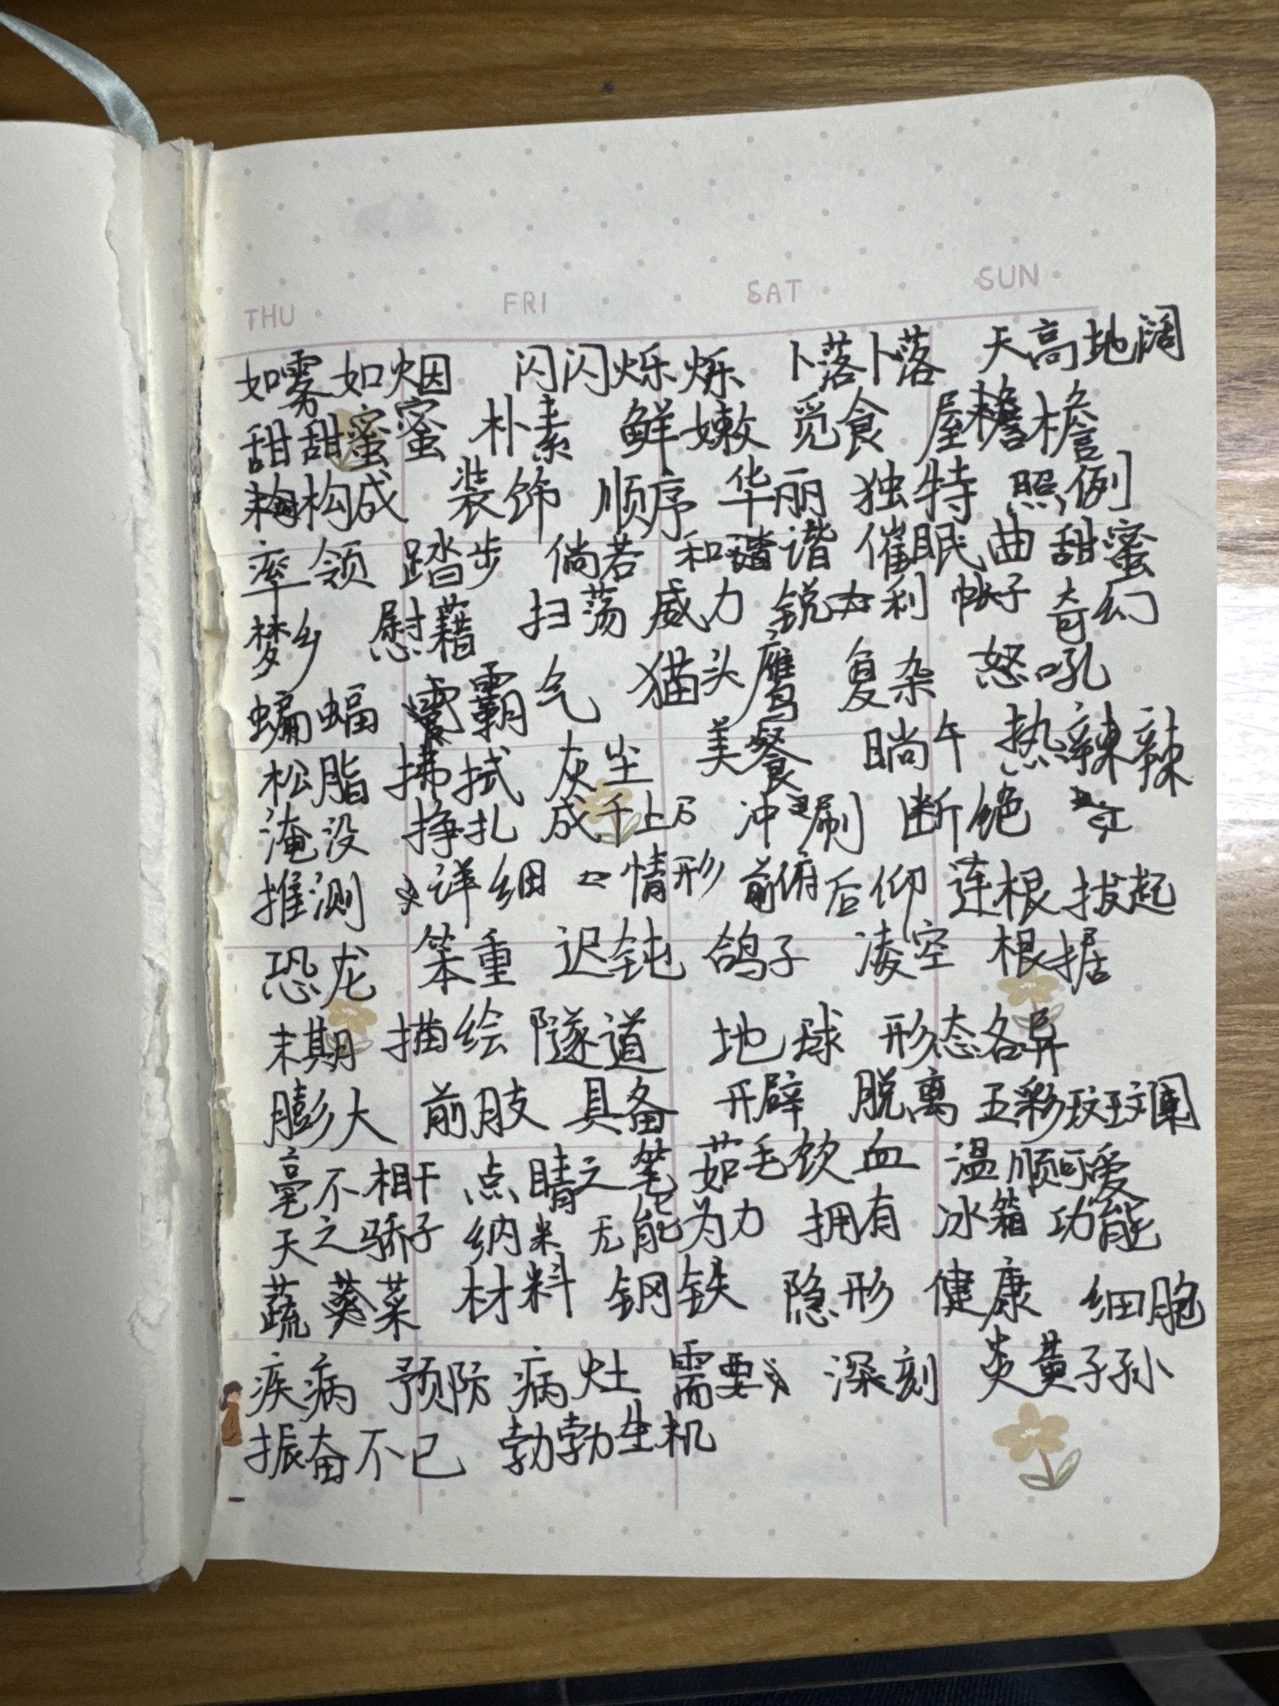 THU FRI SAT SUN
如雾如烟 闪闪烁烁 卜落卜落 天高地阔
甜甜蜜蜜 朴素 鲜嫩 觅食 屋檐
构成 装饰 顺序 华丽 独特 照例
率领 踏步 倘若 和谐 催眠曲 甜蜜
梦乡 慰藉 扫荡 威力 锐利 帐子 奇幻
蝙蝠 霸气 猫头鹰 复杂 怒吼
松脂 拂拭 灰尘 美餐 晌午 热辣辣
淹没 挣扎 成千上万 冲刷 断绝
推测 详细 情形 前俯后仰 连根拔起
恐龙 笨重 迟钝 鸽子 凌空 根据
末期 描绘 隧道 地球 形态各异
膨大 前肢 具备 开辟 脱离 五彩斑斓
毫不相干 点睛之笔 茹毛饮血 温顺可爱
天之骄子 纳米 无能为力 拥有 冰箱 功能
蔬菜 材料 钢铁 隐形 健康 细胞
疾病 预防 病灶 需要 深刻 炎黄子孙
振奋不已 勃勃生机